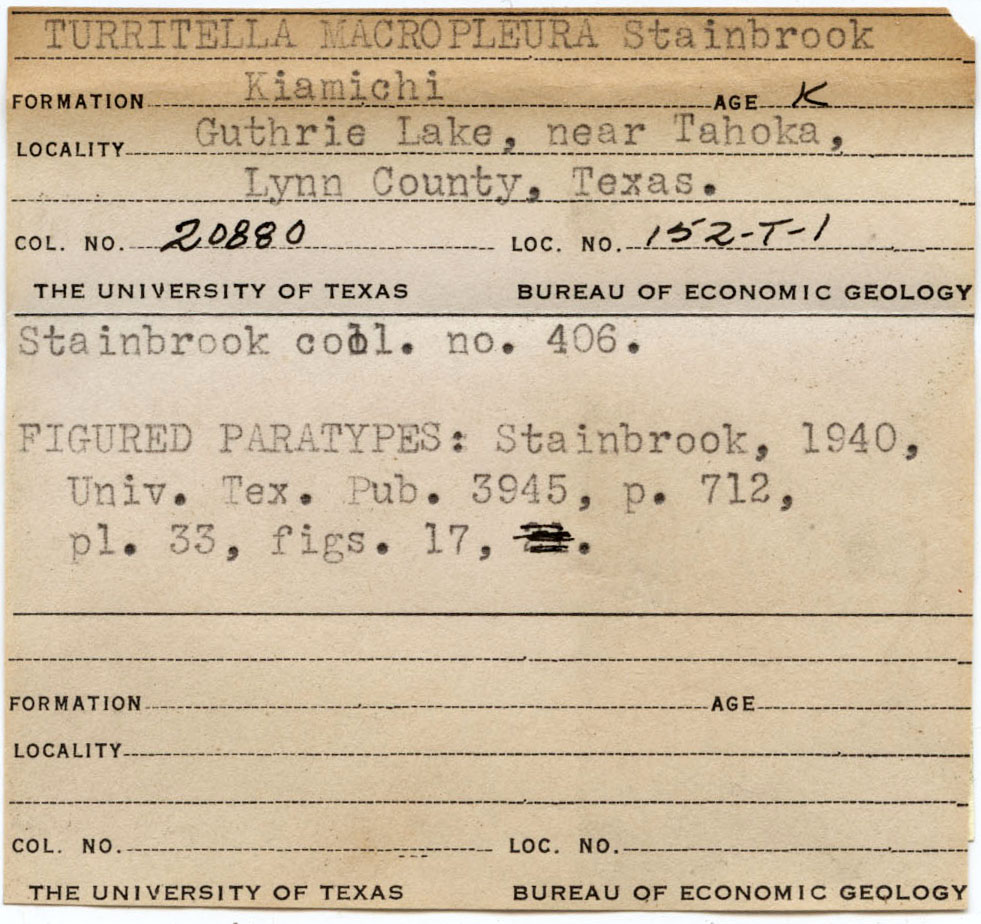 TURRITELLA MACROPLEURA Stainbrook
FORMATION Kiamichi AGE K
LOCALITY Guthrie Lake, near Tahoka,
Lynn County, Texas.
COL. NO. 20880 LOC. NO. 152-T-1
THE UNIVERSITY OF TEXAS BUREAU OF ECONOMIC GEOLOGY
Stainbrook coll. no. 406.
FIGURED PARATYPES: Stainbrook, 1940,
Univ. Tex. Pub. 3945, p. 712,
pl. 33, figs. 17, .
FORMATION AGE
LOCALITY
COL. NO. LOC. NO.
THE UNIVERSITY OF TEXAS BUREAU OF ECONOMIC GEOLOGY